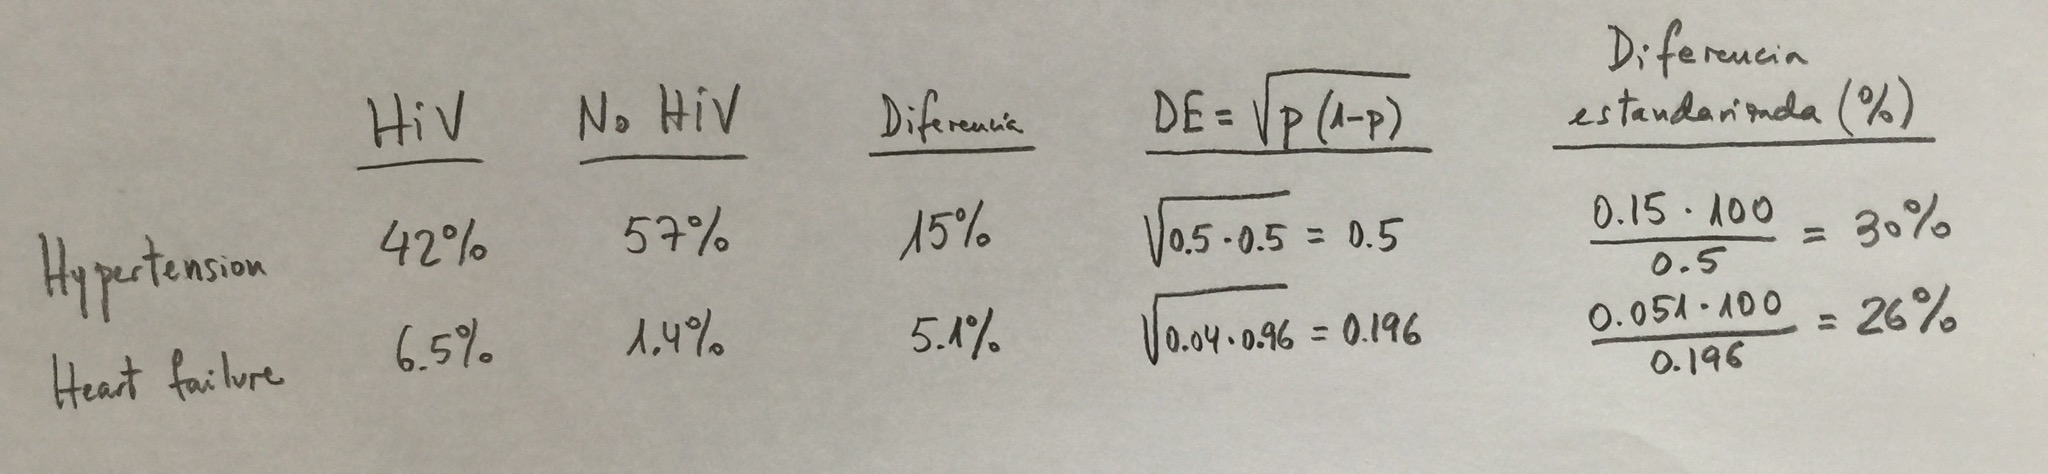 Diferencia
HiV No HiV Diferencia DE = √p (1-p) estandarizada (%)
Hypertension 42% 57% 15% √0.5 · 0.5 = 0.5 0.15 · 100 / 0.5 = 30%
Heart failure 6.5% 1.4% 5.1% √0.04 · 0.96 = 0.196 0.051 · 100 / 0.196 = 26%